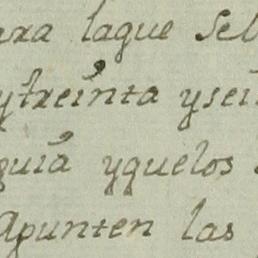 ara laque Seb
ytreinta ysei
guia yquelos
Apunten las